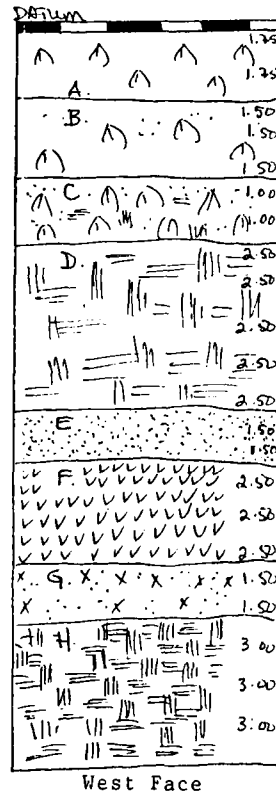 DATUM
1.75
1.75
A.
B.
1.50
1.50
1.50
C
1.00
1.00
D.
2.50
2.50
2.50
2.50
2.50
E
1.50
1.50
F.
2.50
2.50
2.50
G.
1.50
1.50
H.
3.00
3.00
3.00
West Face